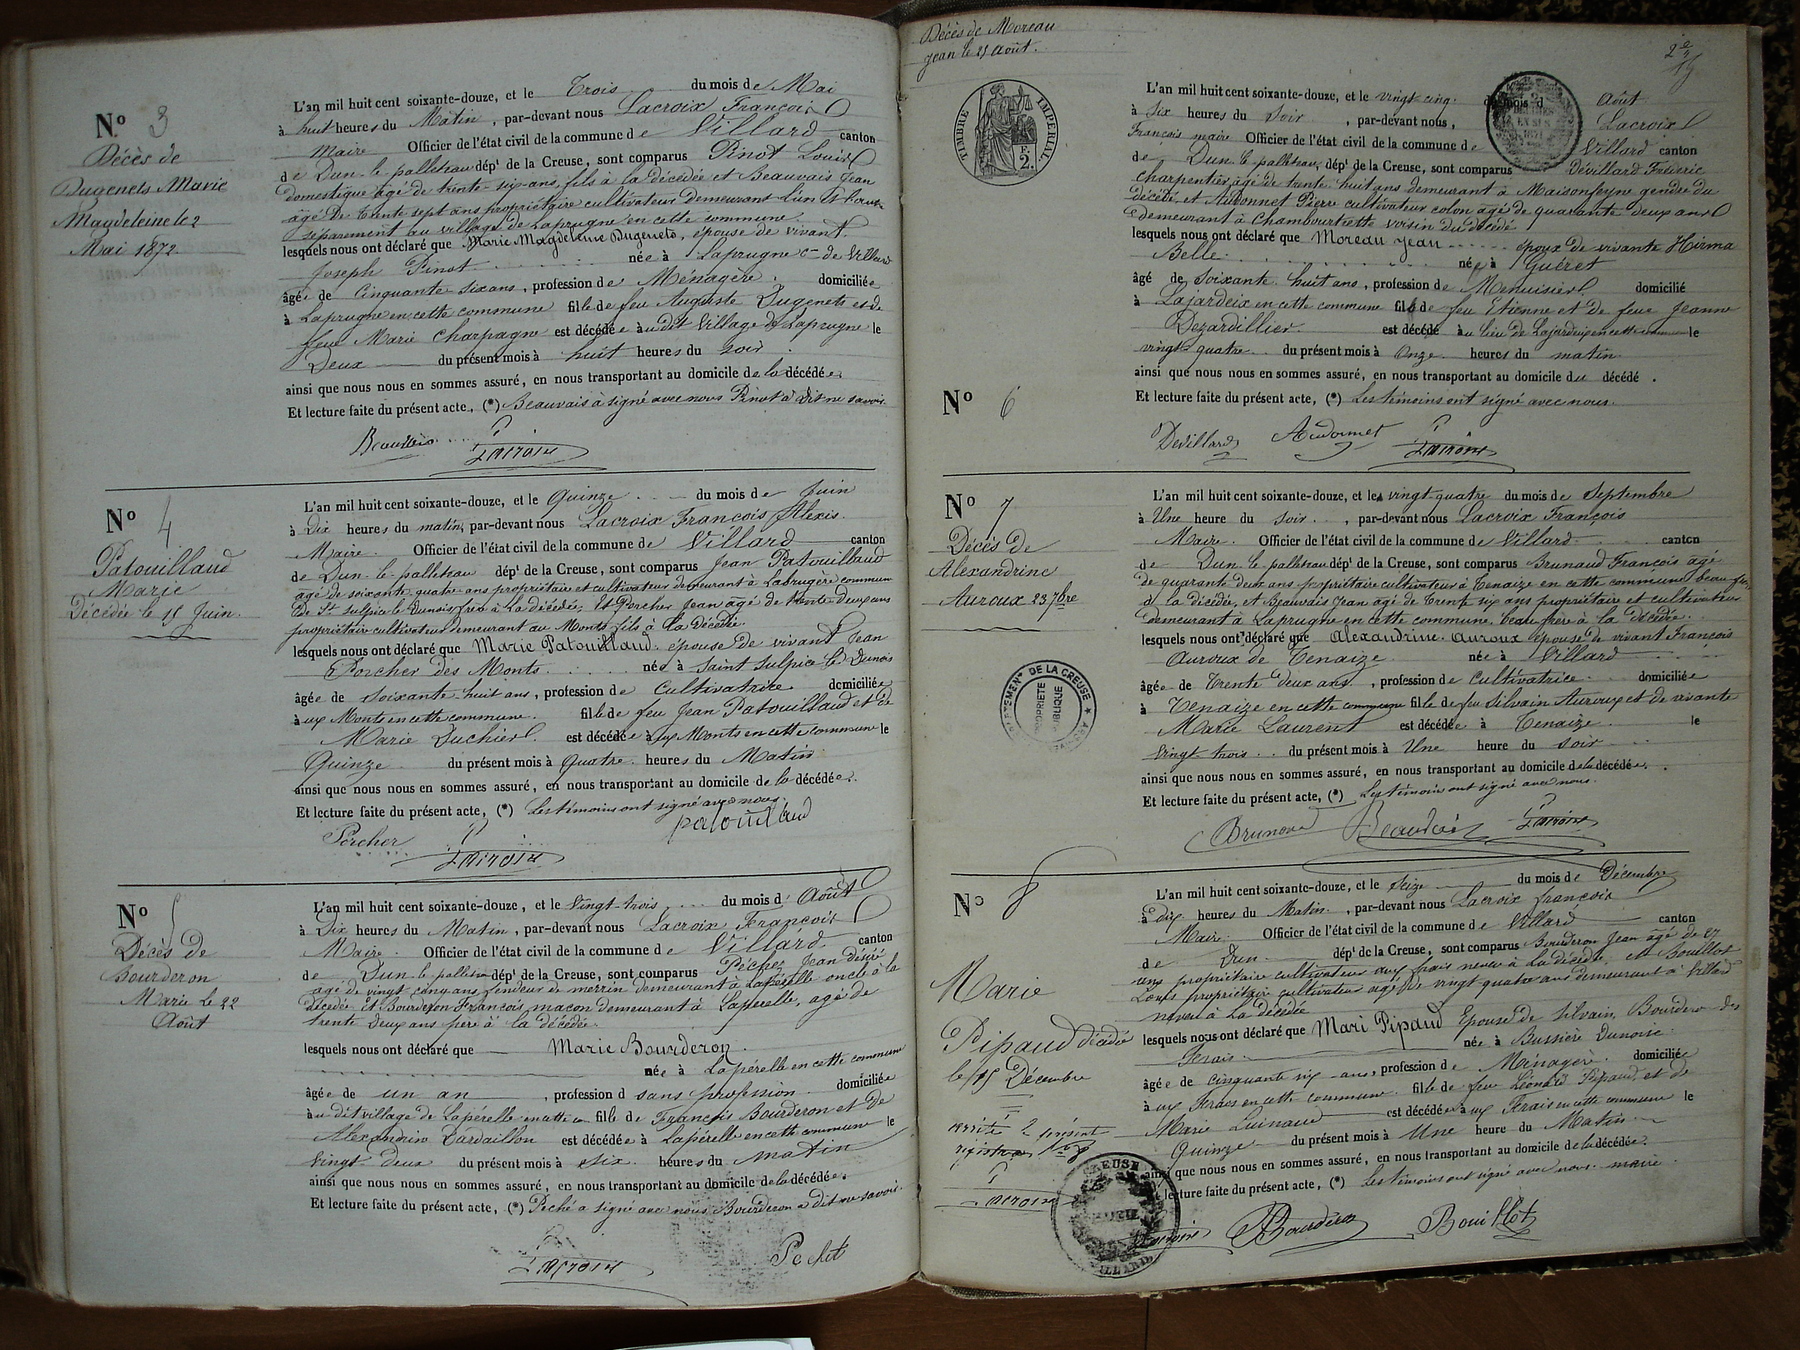 N.º 3
Décès de
Dugenets Marie
Magdeleine le 2
Mai 1872
L'an mil huit cent soixante-douze, et le Trois du mois de Mai
à huit heures du Matin, par-devant nous Lacroix François
Maire Officier de l'état civil de la commune de Villard canton
de Dun-le-palleteau dépt de la Creuse, sont comparus Pinot Louis
domestique âgé de trente-six ans, fils à la décédée et Beauvais Jean
âgé de trente sept ans propriétaire cultivateur demeurant l'un et l'autre
séparement au village de Laprugne en cette commune
lesquels nous ont déclaré que Marie Magdeleine Dugenets, épouse de vivant
Joseph Pinot née à Laprugne cne de Villard
âgée de Cinquante six ans, profession de Ménagère. domiciliée
à Laprugne en cette commune fille de feu Auguste Dugenets et de
feue Marie Charpagne est décédée au dit Village de Laprugne le
Deux du présent mois à huit heures du soir.
ainsi que nous nous en sommes assuré, en nous transportant au domicile de la décédée.
Et lecture faite du présent acte, (*) Beauvais à signé avec nous Pinot a dit ne savoir.
Beauvais Lacroix
Nº 4
Patouillaud
Marie
Décédée le 15 Juin.
L'an mil huit cent soixante-douze, et le Quinze du mois de Juin
à Dix heures du matin, par-devant nous Lacroix François Alexis.
Maire. Officier de l'état civil de la commune de Villard canton
de Dun-le-palleteau dépt de la Creuse, sont comparus Jean Patouillaud
âgé de soixante quatre ans propriétaire et cultivateur demeurant à Labrugère commune
de St sulpice le Dunois frère à la décédée, et Porcher Jean âgé de trente deux ans
propriétaire cultivateur demeurant au Monts fils à la décédée.
lesquels nous ont déclaré que Marie Patouillaud. épouse de vivant Jean
Porcher des Monts. née à Saint Sulpice le Dunois
âgée de soixante huit ans, profession de Cultivatrice. domiciliée
à ux Monts en cette commune. fille de feu Jean Patouillaud et de
Marie Duchier est décédée à ux Monts en cette commune le
Quinze du présent mois à Quatre heures du Matin
ainsi que nous nous en sommes assuré, en nous transportant au domicile de la décédée.
Et lecture faite du présent acte, (*) Les témoins ont signé avec nous.
Porcher Lacroix patouillaud
Nº 5
Décès de
Bourderon
Marie le 22
Août
L'an mil huit cent soixante-douze, et le Vingt-trois du mois d' Août
à Dix heures du Matin, par-devant nous Lacroix François
Maire. Officier de l'état civil de la commune de Villard canton
de Dun le palleteau dépt de la Creuse, sont comparus Péchet Jean désiré
âgé de vingt cinq ans, fendeur de merrin demeurant à Lapérelle oncle à la
décédée Et Bourderon François maçon demeurant à Lapérelle, agé de
trente deux ans père à la décédée.
lesquels nous ont déclaré que Marie Bourderon.
née à Lapérelle en cette commune
âgée de un an, profession d sans profession domiciliée
au dit village de Lapérelle fille de François Bourderon et de
Alexandrine Dardaillon est décédée à Lapérelle en cette commune le
Vingt deux du présent mois à six heures du matin
ainsi que nous nous en sommes assuré, en nous transportant au domicile de la décédée.
Et lecture faite du présent acte, (*) Péché a signé avec nous Bourderon a dit ne savoir.
Lacroix Péchet
Décès de Moreau
Jean le 25 Août.
TIMBRE IMPERIAL
F. 2.
Nº 6
L'an mil huit cent soixante-douze, et le vingt cinq. du mois d Août
à Six heures du Soir, par-devant nous, Lacroix
François maire Officier de l'état civil de la commune de Villard canton
de Dun le palleteau, dépt de la Creuse, sont comparus Dévillard Fréderic
charpentier âgé de trente-huit ans demeurant à Maisonfeyne gendre du
décédé, et Audonnet Pierre cultivateur colon agé de quarante deux ans
demeurant à Chambourtiette voisin du décédé
lesquels nous ont déclaré que Moreau Jean époux de vivante Hirma
Belle. né à Guéret
âgé de soixante huit ans, profession de Menuisier domicilié
à Lajardeix en cette commune fils de feu Etienne et de feue Jeanne
Dezardillier est décédé au lieu de Lajardeix en cette commune le
vingt quatre du présent mois à Onze heures du matin
ainsi que nous nous en sommes assuré, en nous transportant au domicile du décédé.
Et lecture faite du présent acte, (*) Les témoins ont signé avec nous.
Devillard Audonnet Lacroix
Nº 7
Décès de
Alexandrine
Auroux 23 7bre
DEPARTEMENT DE LA CREUSE
PROPRIETE PUBLIQUE
L'an mil huit cent soixante-douze, et le vingt-quatre du mois de Septembre
à Une heure du soir, par-devant nous Lacroix François
Maire. Officier de l'état civil de la commune de Villard canton
de Dun le palleteau dépt de la Creuse, sont comparus Brunaud François agé
de quarante deux ans propriétaire cultivateur à Tenaize en cette commune beau frère
à la décédée, et Beauvais Jean âgé de trente six ans propriétaire et cultivateur
demeurant à Laprugne en cette commune, beau-frère à la décédée.
lesquels nous ont déclaré que Alexandrine Auroux épouse de vivant François
Auroux de Tenaize née à Villard
âgée de Trente deux ans, profession de Cultivatrice domiciliée
à Tenaize en cette commune fille de feu Silvain Auroux et de vivante
Marie Laurent est décédée à Tenaize le
Vingt trois du présent mois à Une heure du soir
ainsi que nous nous en sommes assuré, en nous transportant au domicile de la décédée.
Et lecture faite du présent acte, (*) Les témoins ont signé avec nous.
Brunaud Beauvais Lacroix
Nº 8
Marie
Pipaud décédée
le 15 Décembre
Lacroix
L'an mil huit cent soixante-douze, et le Seize du mois de Décembre
à dix heures du Matin, par-devant nous Lacroix françois
Maire Officier de l'état civil de la commune de Villard canton
de Dun dépt de la Creuse, sont comparus Bourderon Jean agé de 27
ans propriétaire cultivateur aux frais neveu à la décédée, et Bouillot
Louis propriétaire cultivateur agé de vingt quatre ans demeurant à Villard
neveu à la décédée
lesquels nous ont déclaré que Mari Pipaud Epouse de silvain Bourderon des
frais née à Bussière Dunoise
âgée de cinquante six ans, profession de Ménagère. domiciliée
à ux frais en cette commune fille de feu Léonard Pipaud, et de
Marie Guinaud est décédée à ux frais en cette commune le
Quinze du présent mois à Une heure du Matin
ainsi que nous nous en sommes assuré, en nous transportant au domicile de la décédée.
lecture faite du présent acte, (*) Les témoins ont signé avec nous maire.
Lacroix Bourderon Bouillot
CREUSE
MAIRIE
VILLARD